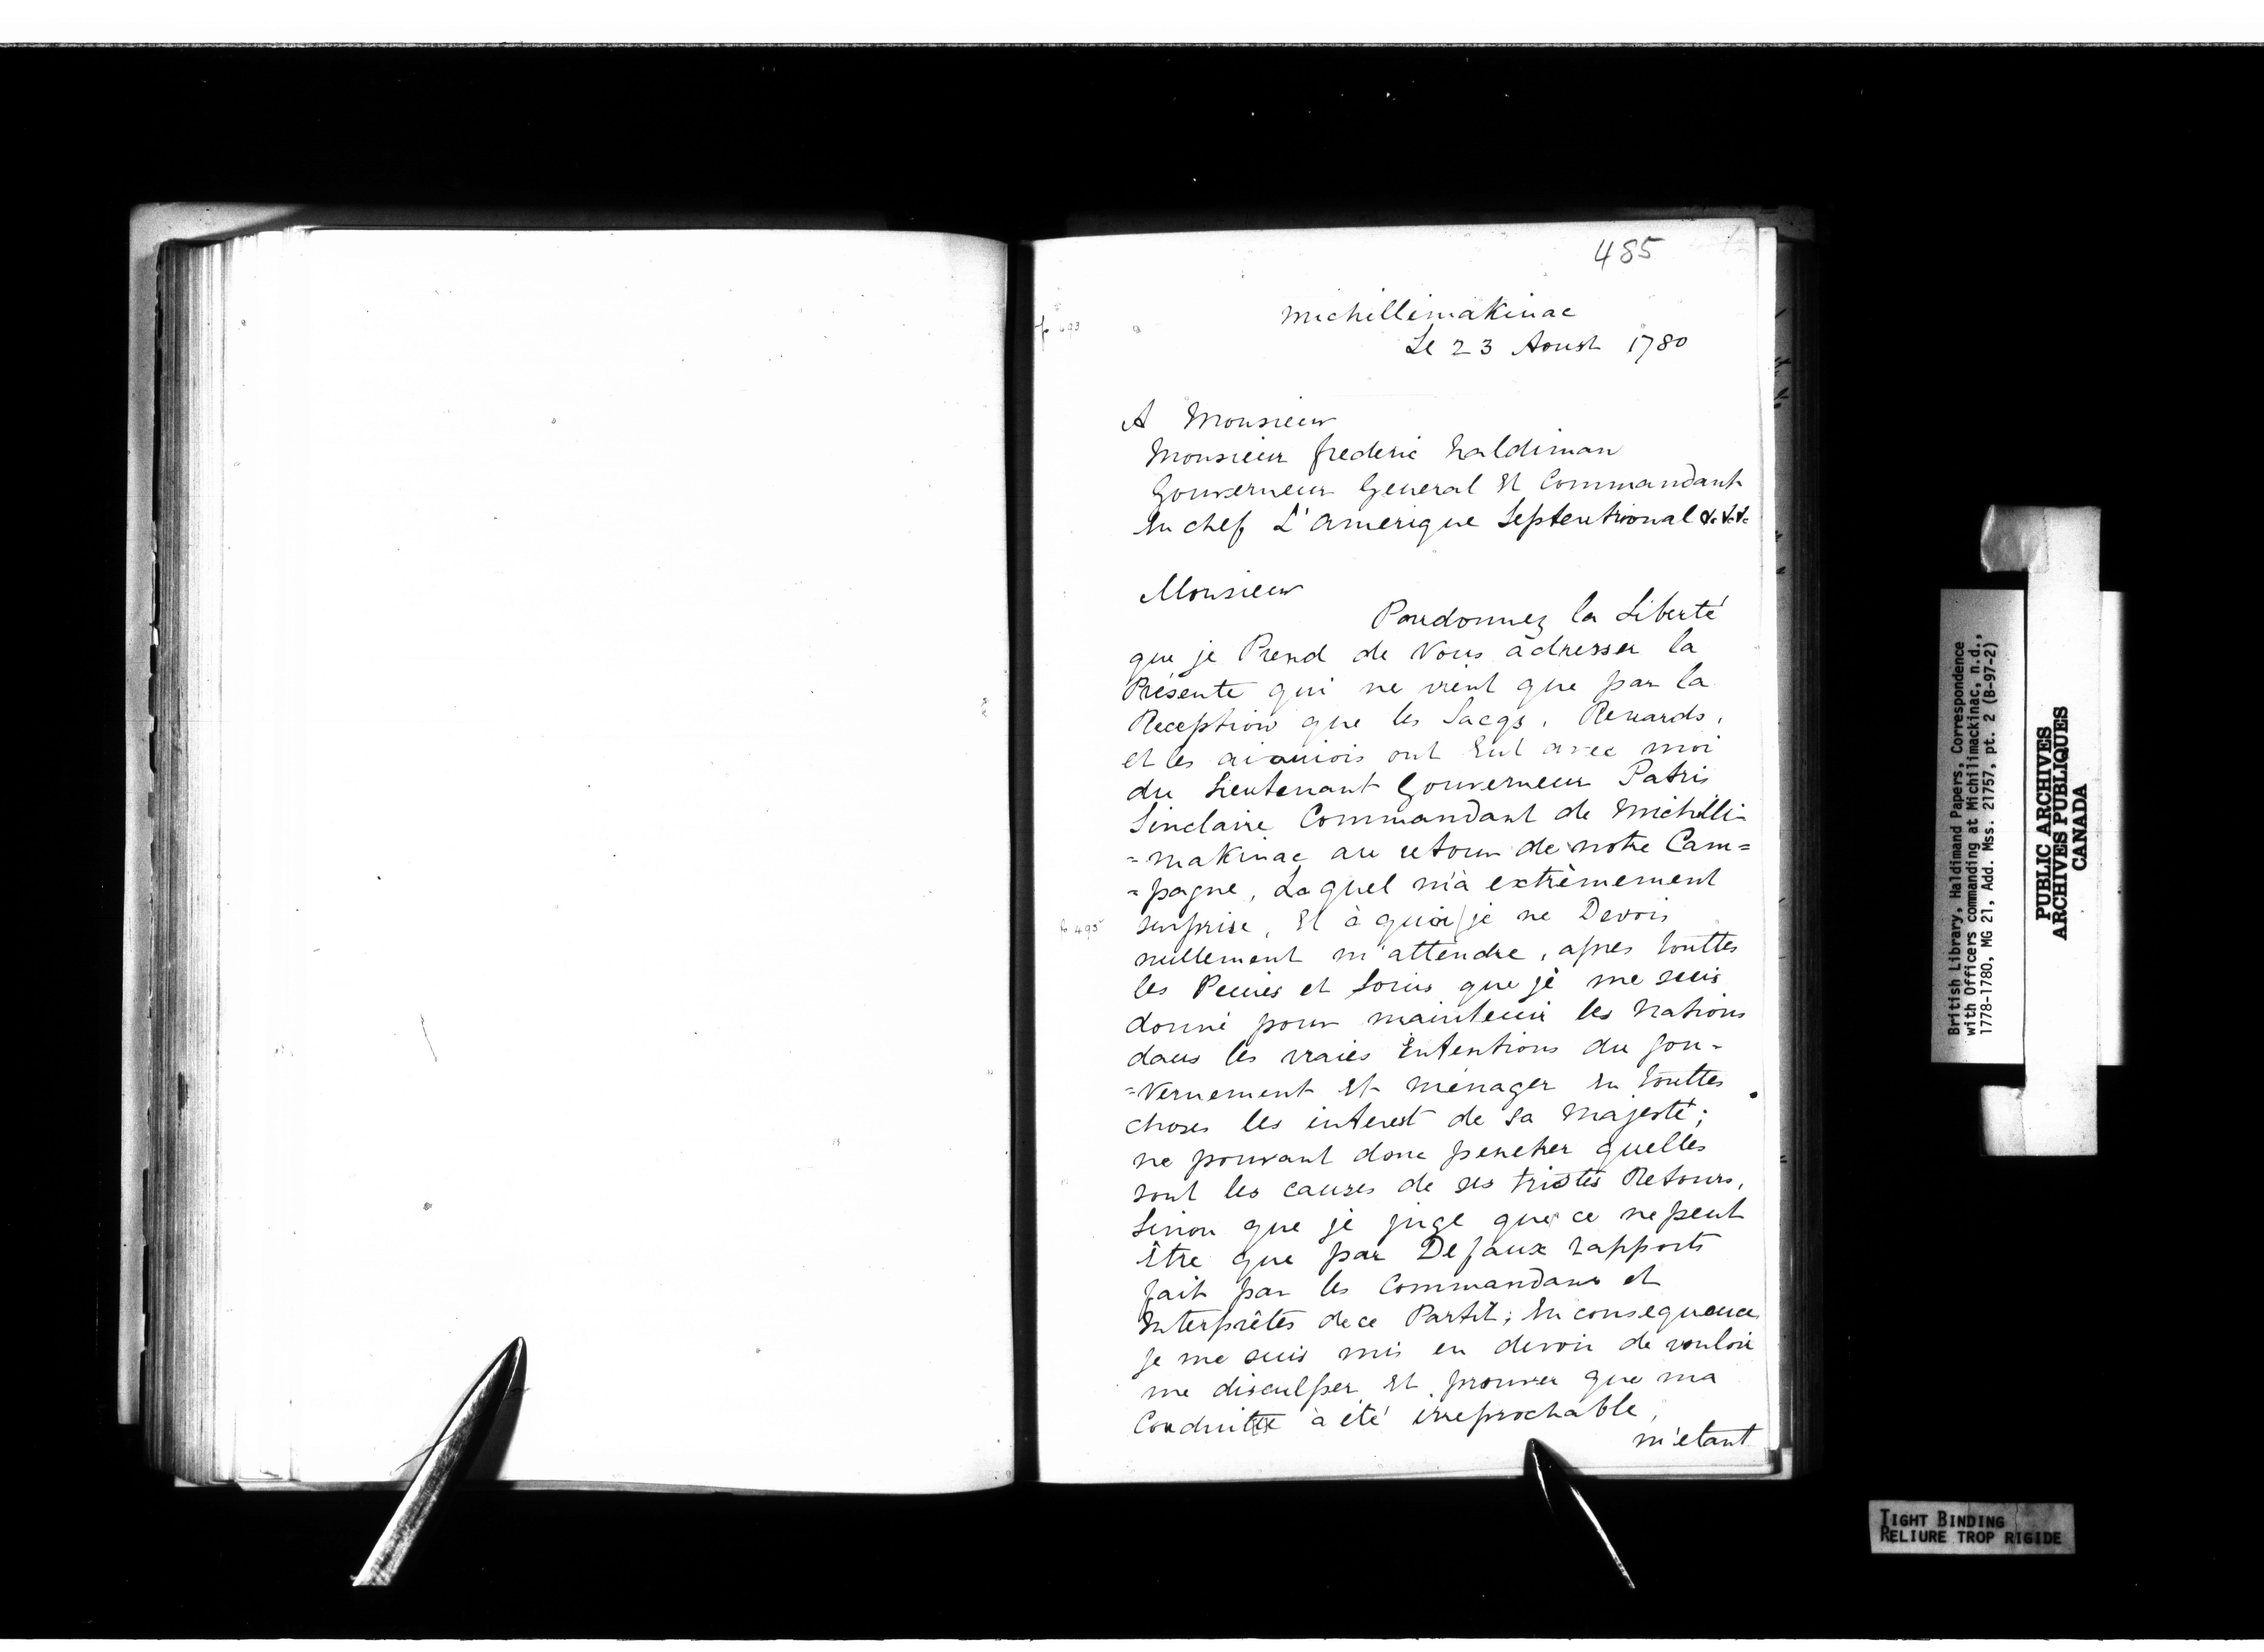 485
fo 493
Michillimakinac
Le 23 Aoust 1780
A Monsieur
Monsieur frederic haldiman
Gouverneur General Et Commandant
En chef L'amerique Septentrional &c &c &c
Monsieur
Pardonnez la Liberté
que je Prend de Vous àdresser la
Présente qui ne vient que par la
Reception que les Sacqs, Renards,
et les aiauiois ont Eut avec moi
du Lieutenant Gouverneur Patris
Sinclaire Commandant de Michilli=
=makinac au retour de notre Cam=
=pagne, Laquel m'à extrèmement
fo 495
surprise, Et à quoi/je ne Devois
nullement m'attendre, apres touttes
les Peines et Soins que je me suis
donné pour maintenir les Nations
dans les vraies Ententions du Gou=
=vernement Et ménager En touttes
choses les interest de Sa Majesté;
ne pouvant donc penetrer quelles
sont les causes de ses tristes Retours,
Sinon que je juge que ce ne peut
Être que par De faux rapports
fait par les Commandans et
Interprêtes de ce Partit; En consequence
je me suis mis en devoir de vouloir
me disculper Et prouver que ma
Conduitte à été irreprochable,
m'etant
British Library, Haldimand Papers, Correspondence
with Officers commanding at Michilimackinac, n.d.,
1778-1780, MG 21, Add. Mss. 21757, pt. 2 (B-97-2)
PUBLIC ARCHIVES
ARCHIVES PUBLIQUES
CANADA
TIGHT BINDING
RELIURE TROP RIGIDE